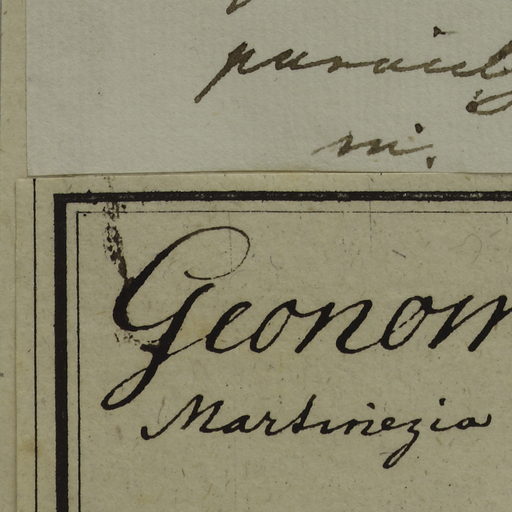 ni.
Geonom
Martinezia